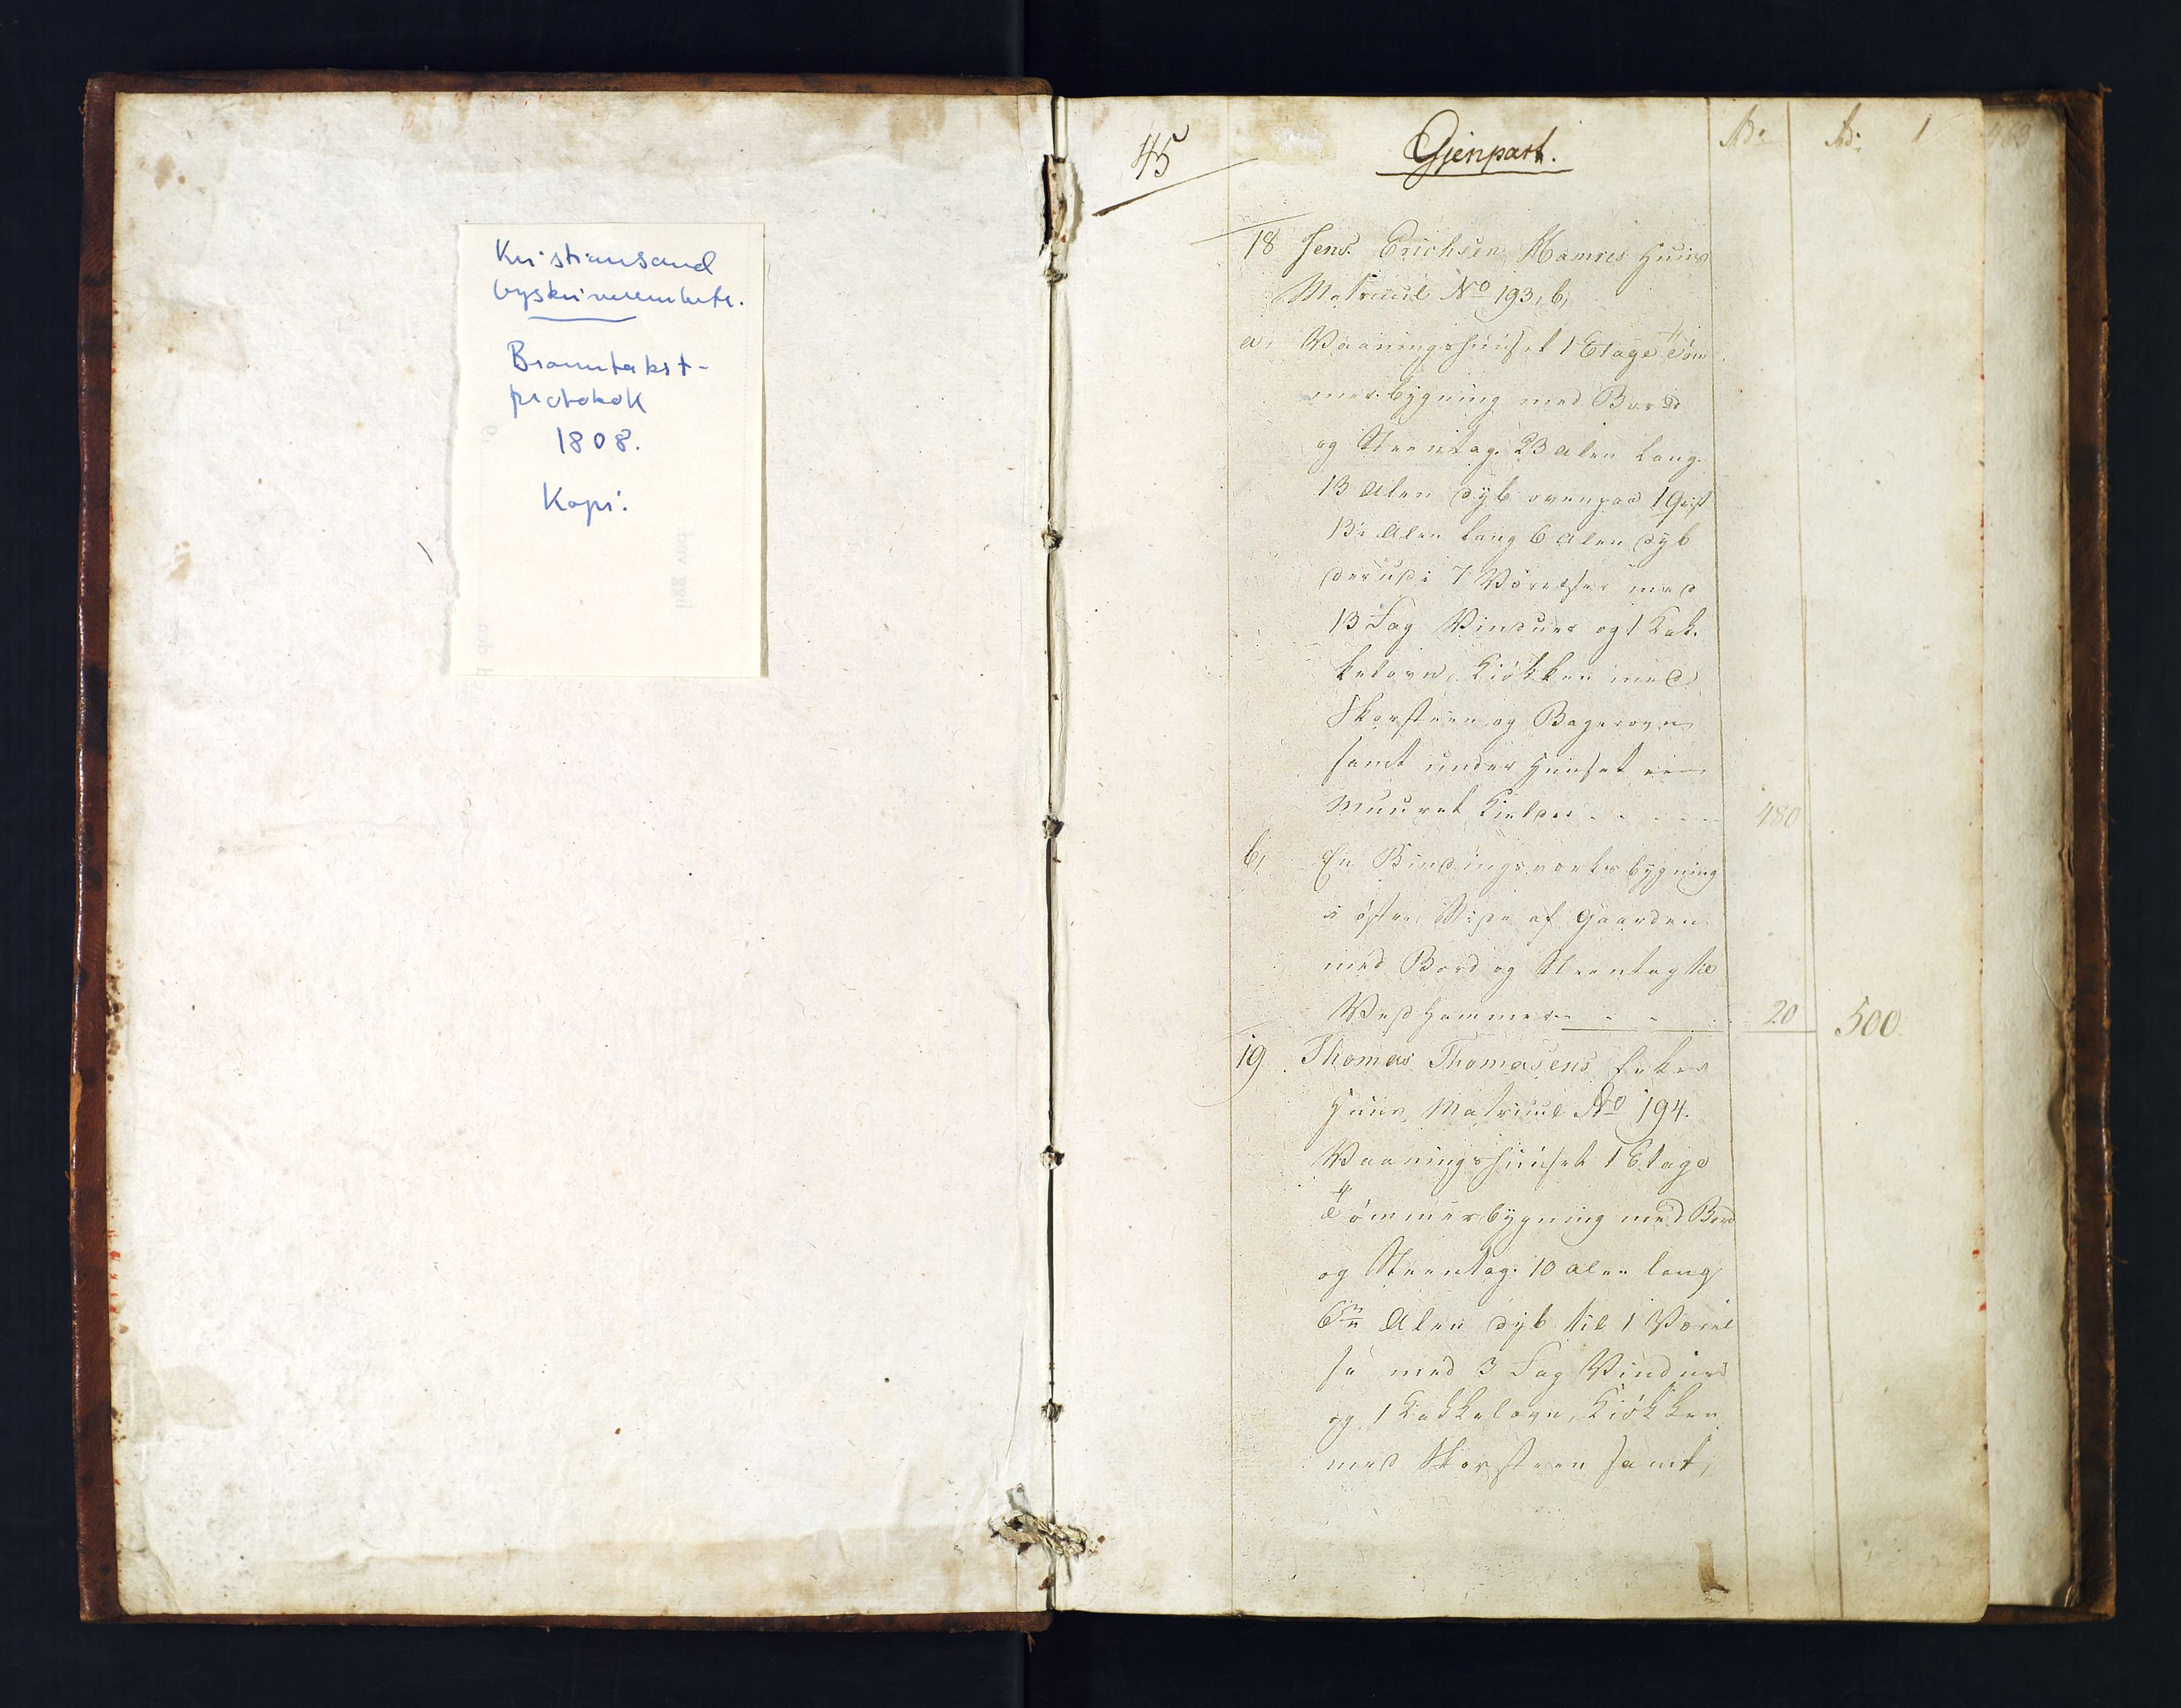 Kristiansand
byskriverembete.
Branntakst-
protokoll
1808.
Kopi.
45
Gjenpart.
Rd:
Rd:
1
463
18 Jens Erichsen Hamres Huus
Matricul No 193, b,
a, Vaaningshuuset 1 Etage Töm
merbygning med Bord
og Steentag 23 Alen lang
13 Alen dyb ovenpaa 1 Qvist
13 Alen lang 6 Alen dyb
derudi 7 Værelser med
13 Fag Vinduer og 1 Kak-
kelovn, Kiökken med
Skorsteen og Bagerovn
samt under Huuset een
Muuret Kielder - - - 480
b, En Bindingsværks bygning
i östre Side af Gaarden
med Bord og Steentag til
Vedhammer - - - 20 500.
19 Thomas Thomasens Enkes
Huus, Matricul No 194.
Vaaningshuuset 1 Etage
Tömmerbygning med Bord
og Steentag 10 Alen lang
Alen dyb til 1 Værel
se med 3 Fag Vinduer
og 1 Kakkelovn, Kiökken
med Skorsteen samt,